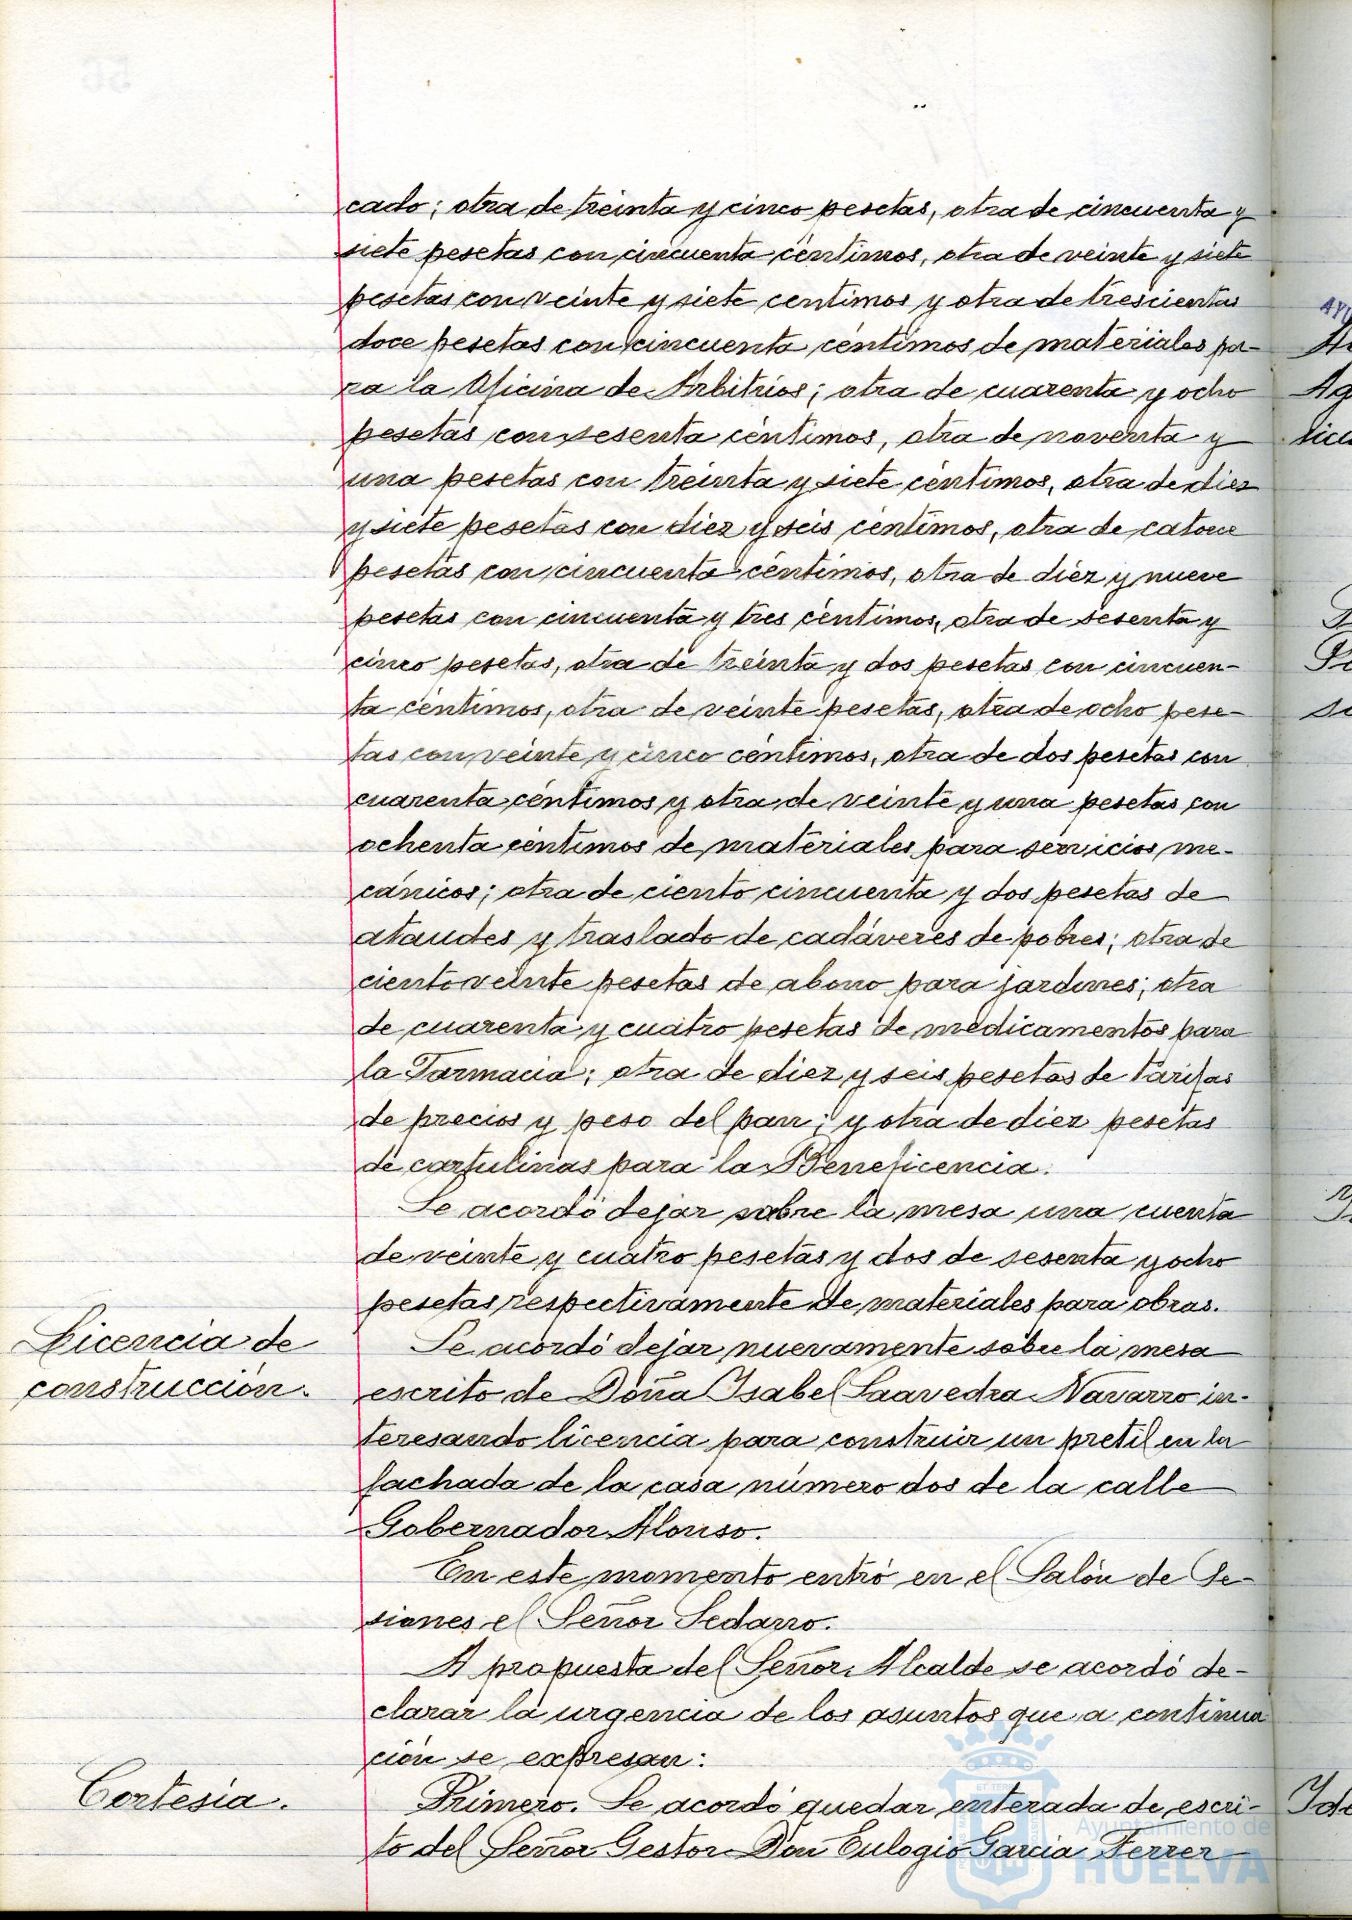 cado; otra de treinta y cinco pesetas, otra de cincuenta y
siete pesetas con cincuenta céntimos, otra de veinte y siete
pesetas con veinte y siete centimos y otra de trescientas
doce pesetas con cincuenta céntimos de materiales pa-
ra la Oficina de Arbitrios; otra de cuarenta y ocho
pesetas con sesenta céntimos, otra de noventa y
una pesetas con treinta y siete céntimos, otra de diez
y siete pesetas con diez y seis céntimos, otra de catorce
pesetas con cincuenta céntimos, otra de diez y nueve
pesetas con cincuenta y tres céntimos, otra de sesenta y
cinco pesetas, otra de treinta y dos pesetas con cincuen-
ta céntimos, otra de veinte pesetas, otra de ocho pese-
tas con veinte y cinco céntimos, otra de dos pesetas con
cuarenta céntimos y otra de veinte y una pesetas con
ochenta céntimos de materiales para servicios me-
cánicos; otra de ciento cincuenta y dos pesetas de
ataudes y traslado de cadáveres de pobres; otra de
ciento veinte pesetas de abono para jardines; otra
de cuarenta y cuatro pesetas de medicamentos para
la Farmacia; otra de diez y seis pesetas de tarifas
de precios y peso del pan; y otra de diez pesetas
de cartulinas para la Beneficencia.
Se acordó dejar sobre la mesa una cuenta
de veinte y cuatro pesetas y dos de sesenta y ocho
pesetas respectivamente de materiales para obras.
Licencia de
construcción.
Se acordó dejar nuevamente sobre la mesa
escrito de Doña Isabel Saavedra Navarro in-
teresando licencia para construir un pretil en la
fachada de la casa número dos de la calle
Gobernador Alonso.
En este momento entró en el Salón de Se-
siones el Señor Sedano.
A propuesta del Señor Alcalde se acordó de-
clarar la urgencia de los asuntos que a continua
ción se expresan:
Cortesía.
Primero. Se acordó quedar enterada de escri-
to del Señor Gestor Don Eulogio García Ferrer
Ayuntamiento de
HUELVA